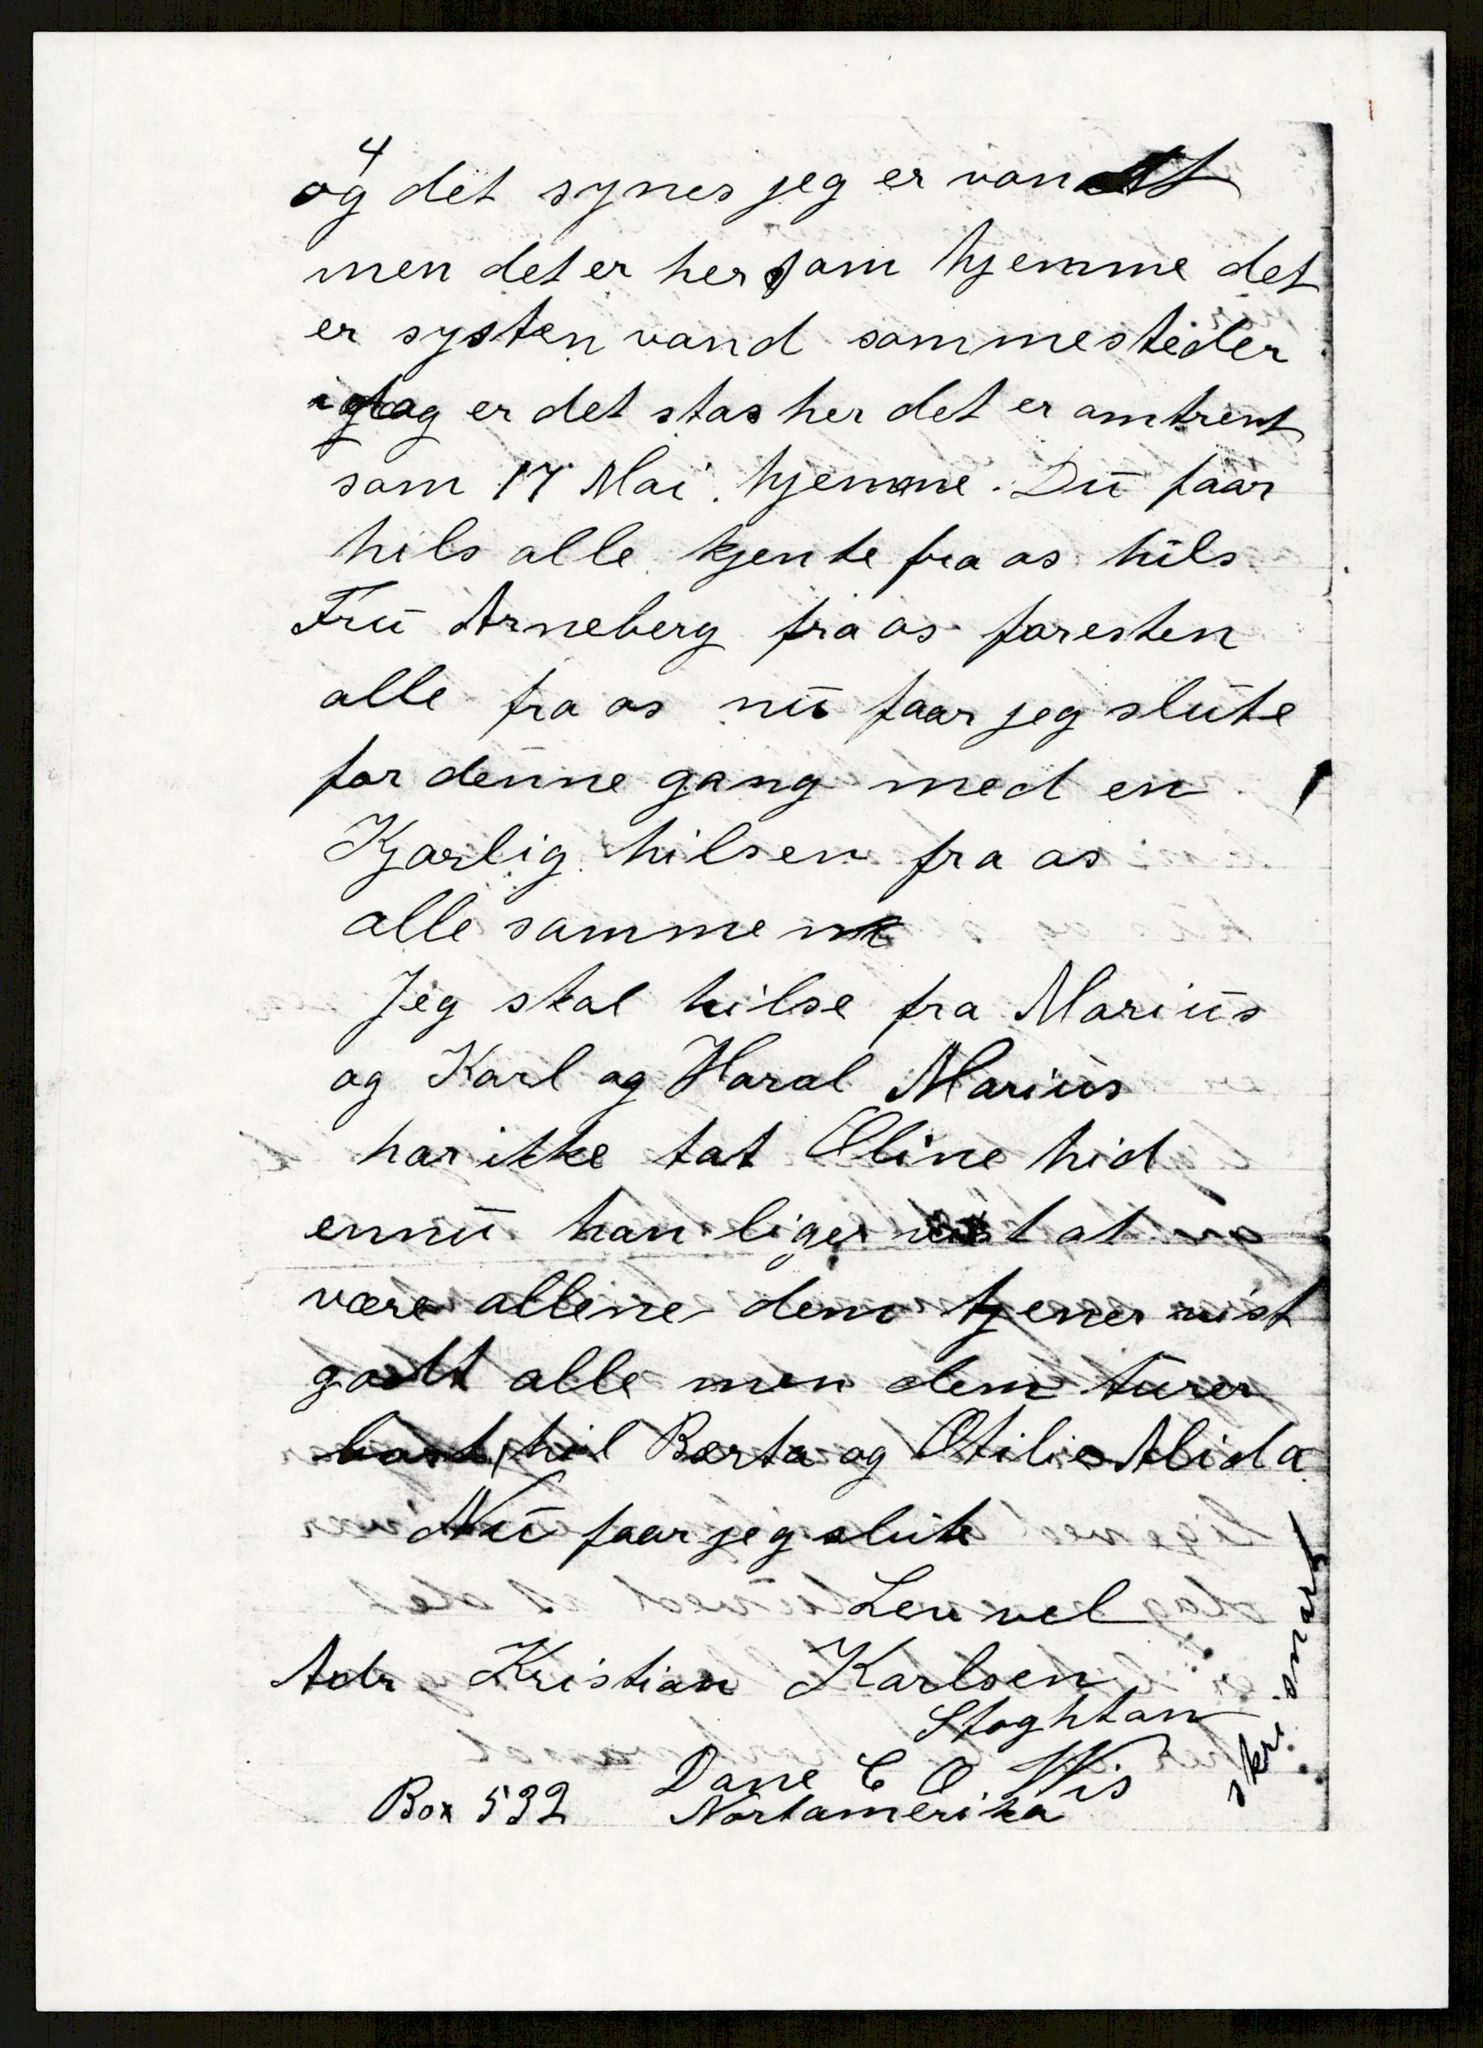 4
og det synes jeg er vondt
men det er her som hjemme det
er systen vand sommesteder
idag er det stas her det er omtrent
som 17 Mai hjemme. Du faar
hils alle kjente fra os hils
Fru Arneberg fra os foresten
alle fra os nu faar jeg slute
for denne gang med en
Kjærlig hilsen fra os
alle sammen
Jeg skal hilse fra Marius
og Karl og Haral Marius
har ikke tat Oline hid
ennu han liger vist at
være allene dem tjener vist
godt alle men dem turer
bort til Berta og Otilie Alida
Nu faar jeg slute
Lev vel
Adr Kristian Karlsen
Stoghton
Dane C O Wis
Box 532 Nortamerika
skri snart